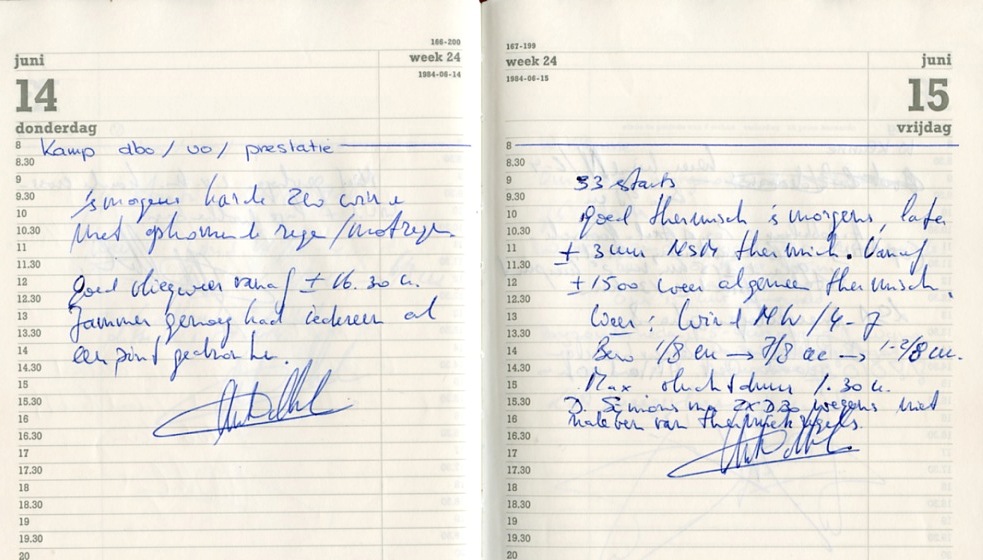 166-200
juni
week 24
1984-06-14
14
donderdag
8 Kamp dbo / vo / prestatie
8.30
9
9.30 's morgens harde ZW wind
10
10.30 met opkomende regen/motregen.
11
11.30
12 Goed vliegweer vanaf ± 16.30 u.
12.30
13 Jammer genoeg had iedereen al
13.30
14 een pint gedronken.
14.30
15
15.30
16
16.30
17
17.30
18
18.30
19
19.30
20
167-199
week 24
juni
1984-06-15
15
vrijdag
8
8.30
9 33 starts
9.30
10 goed thermisch 's morgens, later
10.30
11 ± 3 uur thermisch. Vanaf
11.30
12 ± 1500 weer algemeen thermisch.
12.30
13 Weer: Wind NW / 4-7
13.30
14 Bew 1/8 cu → 7/8 → 1-2/8 cu.
14.30
15 Max vluchtduur 1.30 u.
15.30 D. Simons 2x wegens niet
16 naleven van thermiekregels.
16.30
17
17.30
18
18.30
19
19.30
20